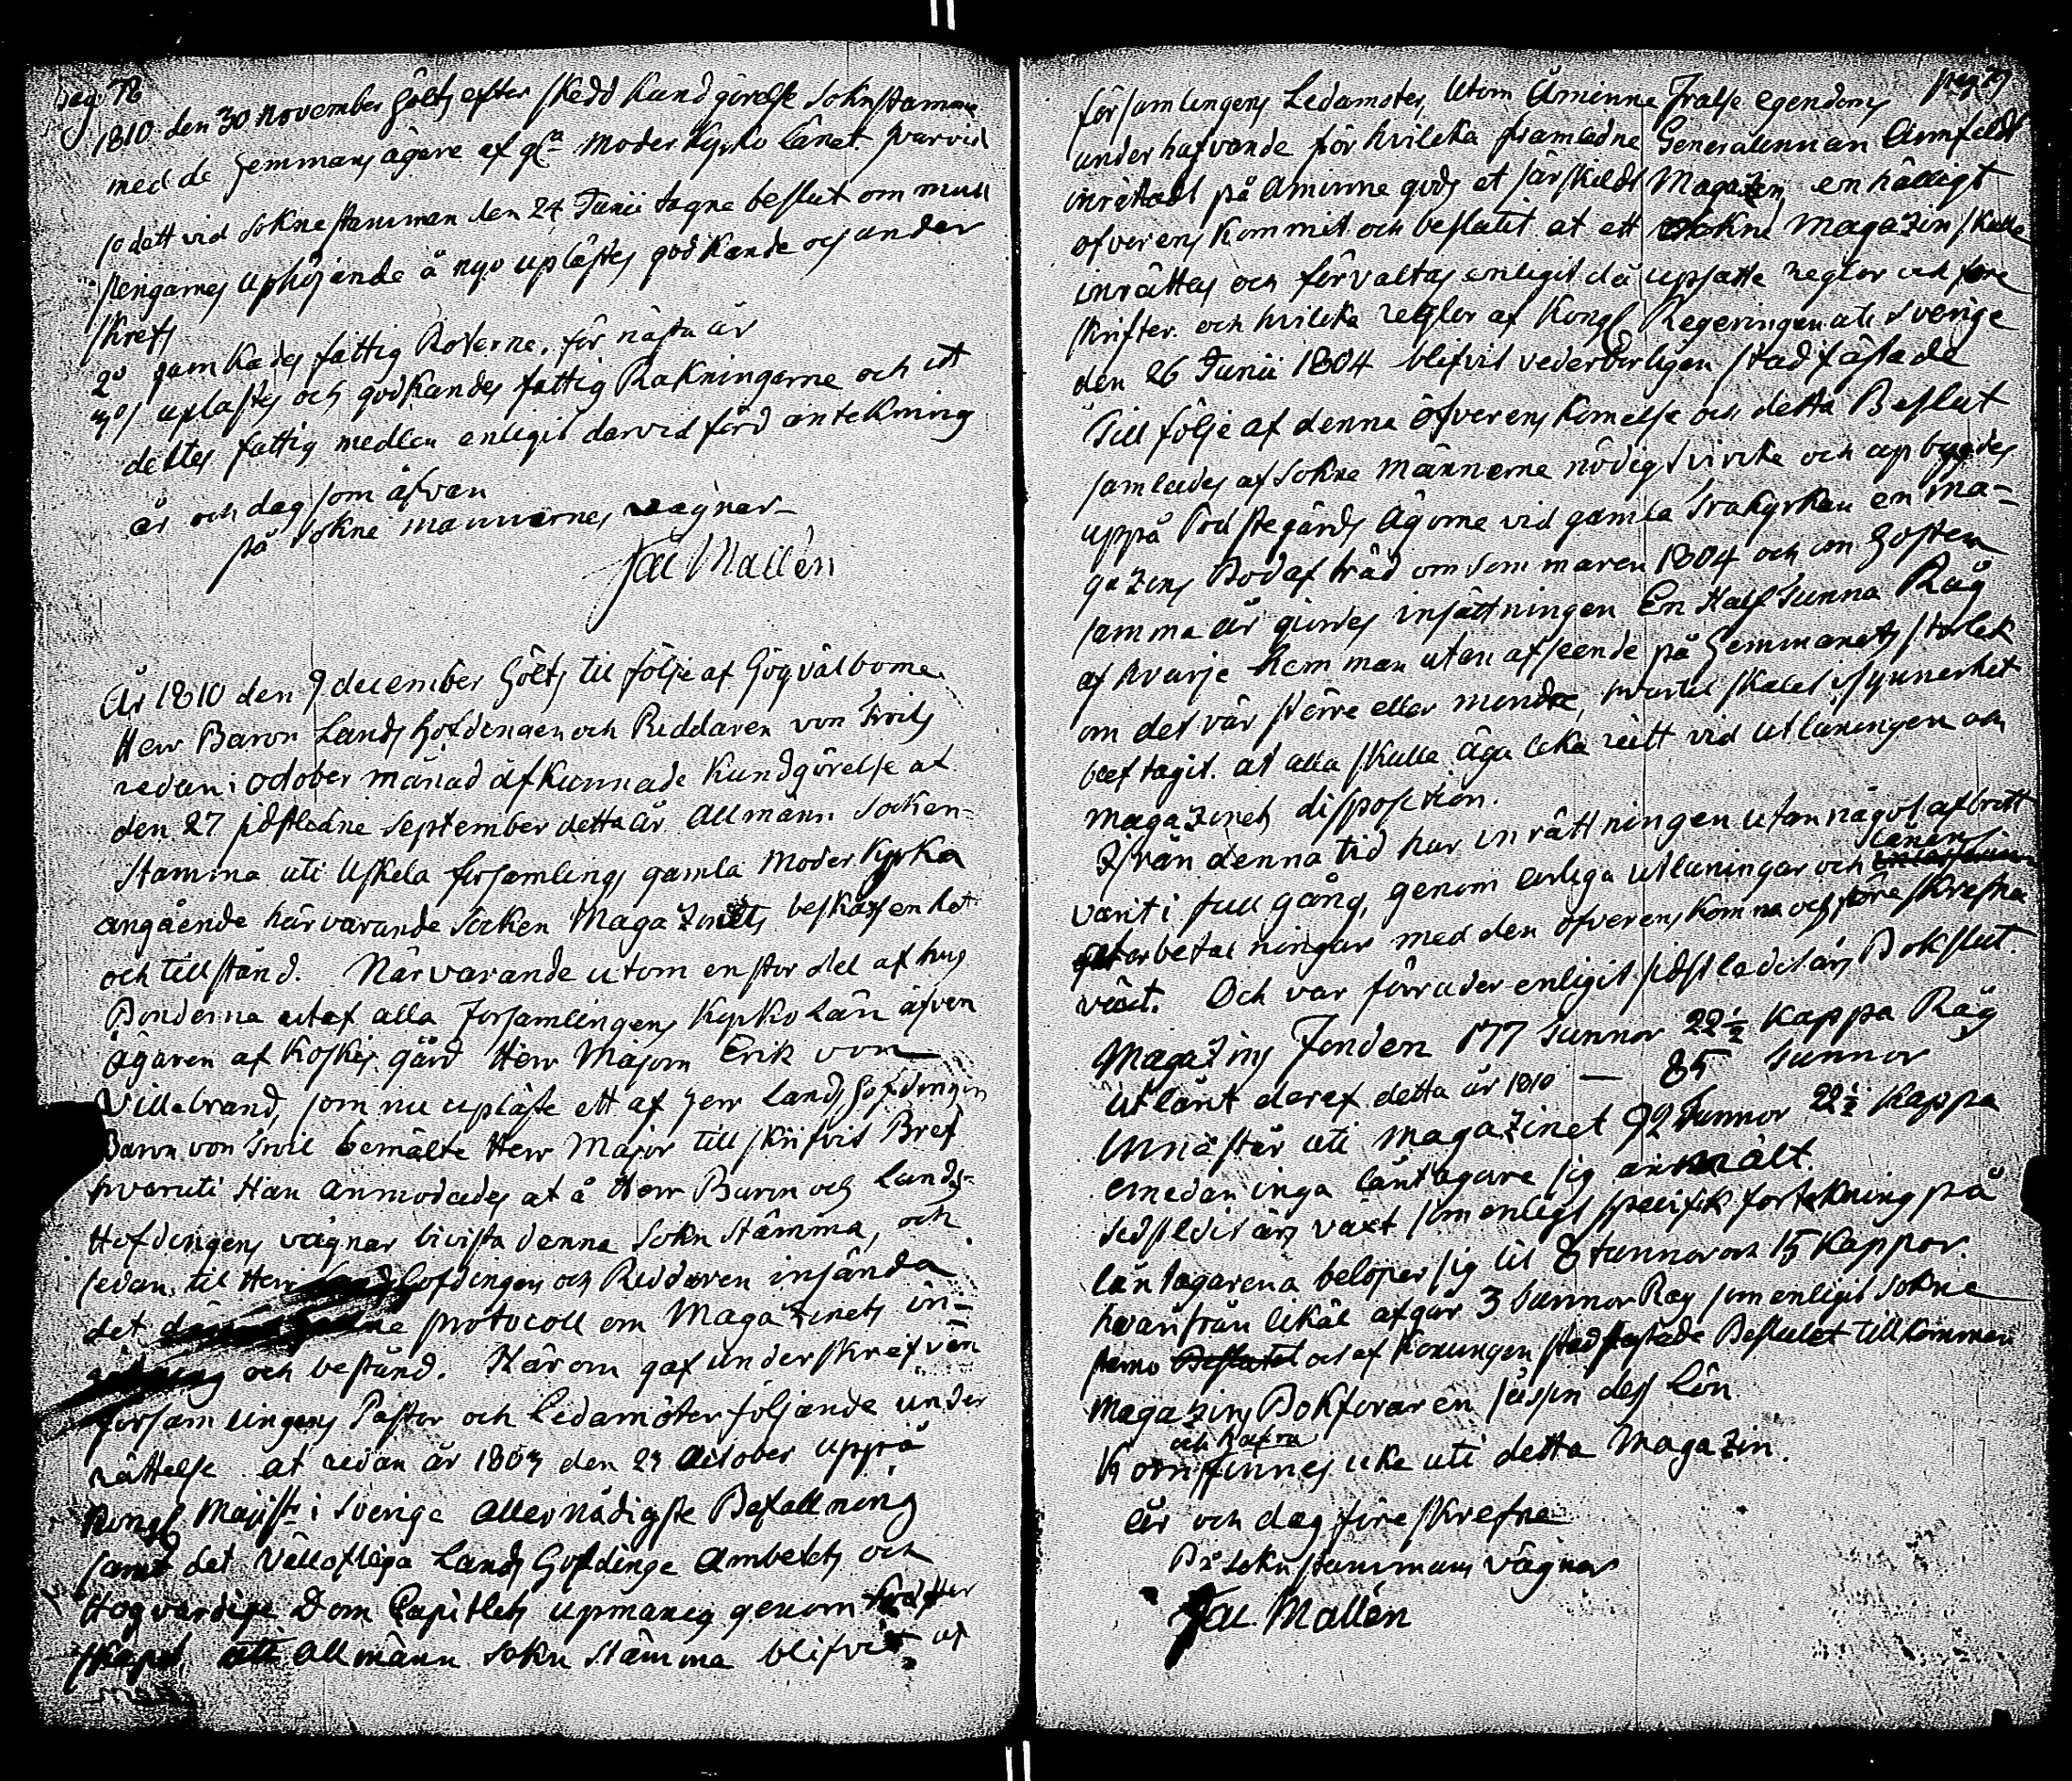 pag 78
1810 den 30 november Hölts efter skedd Kundgörelse Soknstamma
med de Hemmans ägare af gla moder Kyrko länet. hvarvid
så dett vid Soknestamman den 24 Junii tagne beslut om mull
pengarnes uphöjande å nyo uplästes godkände och under
skrefs
2o samkades fattig Roterne, för nästa år
3o uplästes och godkändes fattig Räkningarne och ut
deltes fattig medlen enligit darvid förd antekning
år och dag som äfvan
på Sokne mannernes vägnar
Jac Mallén
År 1810 den 9 december Hölts til följe af Högvälborne
Herr Baron Lands Höfdingen och Riddaren von Troils
redan i October månad afkunnade Kundgörelse af
den 27 sidstledne September detta år Allmänn Socken-
Stamma uti Uskela församlings gamla Moder Kyrka
angående härvarande Socken Magazinets beskaffenhet
och tillstånd. Närvarande utom en stor del af hus
Bönderna utaf alla Församlingens Kyrko Län äfven
ägaren af Koskis gård Herr Majorn Erik von
Villebrand, som nu upläste ett af Herr Lands Höfdingen
Baron von Troil bemälte Herr Major tillskrifvit Bref
hvaruti Han anmodades at å Herr Baron och Lands-
Höfdingens vägnar bivista denna Sokn Stämma, och
sedan til Herr Höfdingen och Riddaren insända
det protocoll om Magazinets in-
och bestånd. Härom gaf underskrefven
församlingens Pastor och Ledamöter följande under
rättelse at redan år 1803 den 23 October uppå
Kongl Majists i Sverige Allernådigste Befallning
samt det Vällofliga Lands Höfdinge Ambetets och
Högvärdige Dom Capitlets upmaning genom
skapet uti Allmänn Sokn Stämma blifvit af
pag 79
församlingens Ledamöter, Utom Åminne Frälse egendoms
underhafvande för hvilcka framledne Generalennan Armfeldt
inrättadt på Aminne gods et särskildt Magazin, enhälligt
öfverens kommit och beslutit at ett Sokne Magazin skulle
inrättes och förvaltas enligit då upsatte regler och före
skrifter och hvilcka regler af Kongl Regeringen uti Sverige
den 26 Junii 1804 blifvit vederbörligen stadfästade
Till följe af denna öfverenskomelse och detta Beslut
samlades af Sokne Männerne nödigt virke och upbygdes
uppå Prestegårds Ägorne vid gamla Träkyrkan en ma-
gazins Bod af träd om Sommaren 1804 och om Hösten
samma år giordes insättningen En Half Tunna Råg
af hvarje Hemman utan afseende på Hemmanets storlek
om det vår större eller mindre, hvartil skälet i synnerhet
blef tagit at alla skulle äga lika rätt vid utlåningen och
magazinets disposition.
Ifrån denna tid har inrättningen utan något afbrott
varit i full gång, genom årliga utlåningar och Lånens
återbetalningar med den öfverenskomna och föreskrefna
växt. Och var förråder enligit sidstledit års Bokslut
Magazins Fonden 177 Tunnor 22½ Kappa Råg
Utlånt deraf detta år 1810 — 85 Tunnor
Innestår uti Magazinet 92 Tunnor 22½ Kappa
emedan inga låntagare sig anmält.
Sidstledit års växt som enligt specifik förtekning på
låntagarena belöper sig til 8 tunnor och 15 Kappor.
hvarifrån likål afgår 3 Tunnor Rag som enligit Sokne
Beslutet och af Konungen stadfästade Beslutet tillkommer
Magazins Bokföraren såsom dess Lön
och hafra
Korn finnes icke uti detta Magazin.
år och dag föreskrefne
På Soknstammans vägnar
Jac. Mallén